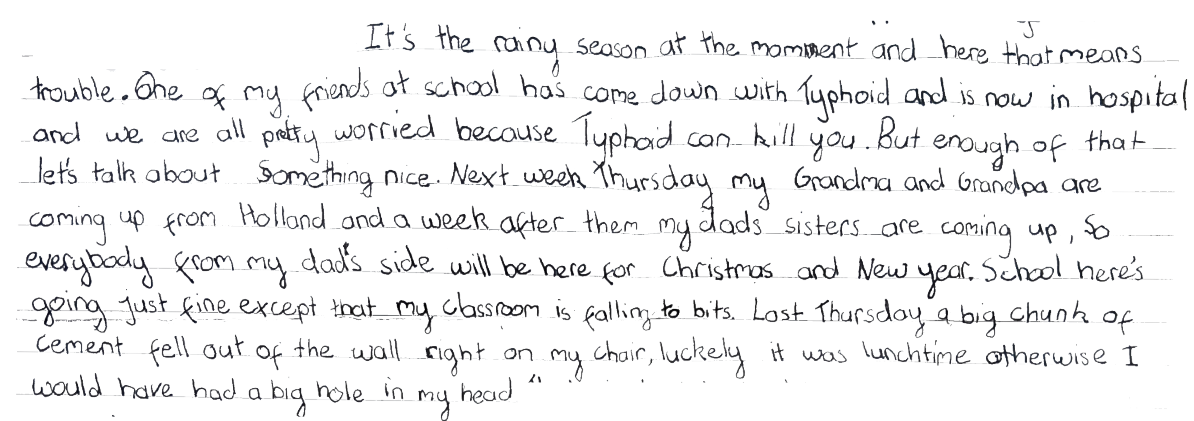 It's the rainy season at the momment and here that means
trouble. One of my friends at school has come down with Typhoid and is now in hospital
and we are all pretty worried because Typhoid can kill you. But enough of that
let's talk about Something nice. Next week Thursday my Grandma and Grandpa are
coming up from Holland and a week after them my dads sisters are coming up, So
everybody from my dad's side will be here for Christmas and New year. School here's
going just fine except that my classroom is falling to bits. Last Thursday a big chunk of
cement fell out of the wall right on my chair, luckely it was lunchtime otherwise I
would have had a big hole in my head "